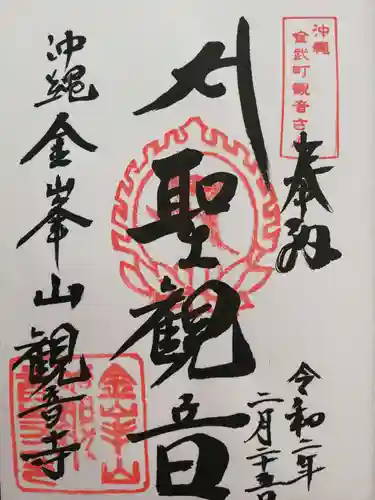 沖縄
金武町観音寺
奉拝
聖観音
令和二年
二月二十五日
沖縄金峯山観音寺
金峯山